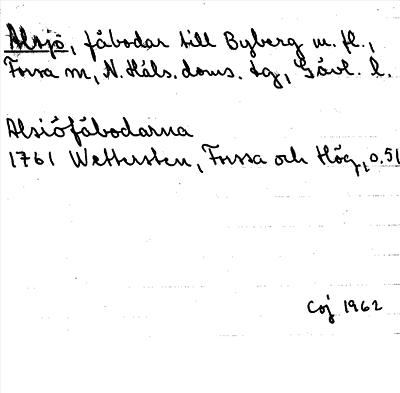 Alsjö, fäbodar till Byberg m. fl.,
Forsa sn, N. Häls. doms. tg, Gävl. l.
Alsiöfäbodarna
1761 Wettersten, Forssa och Hög, o. 51
Coj 1962